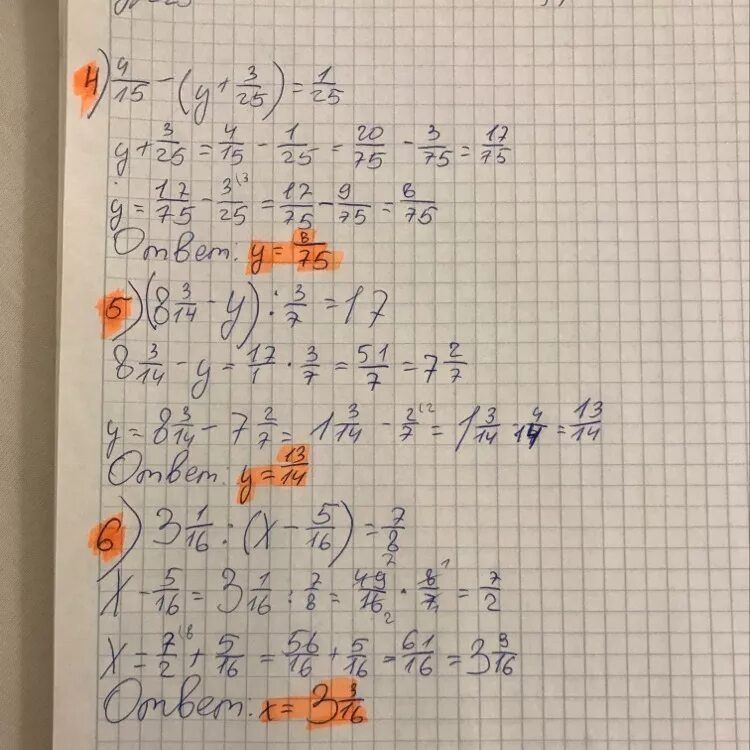 4) 4/15 - (y + 3/25) = 1/25
y + 3/25 = 4/15 - 1/25 = 20/75 - 3/75 = 17/75
y = 17/75 - 3/25 (3 = 17/75 - 9/75 = 8/75
Ответ: y = 8/75
5) (8 3/14 - y) : 3/7 = 17
8 3/14 - y = 17/1 · 3/7 = 51/7 = 7 2/7
y = 8 3/14 - 7 2/7 = 1 3/14 - 2/7 (2 = 1 3/14 - 4/14 = 13/14
Ответ: y = 13/14
6) 3 1/16 : (x - 5/16) = 7/8
x - 5/16 = 3 1/16 : 7/8 = 49/16 · 8/7 = 7/2
x = 7/2 (8 + 5/16 = 56/16 + 5/16 = 61/16 = 3 9/16
Ответ: x = 3 9/16